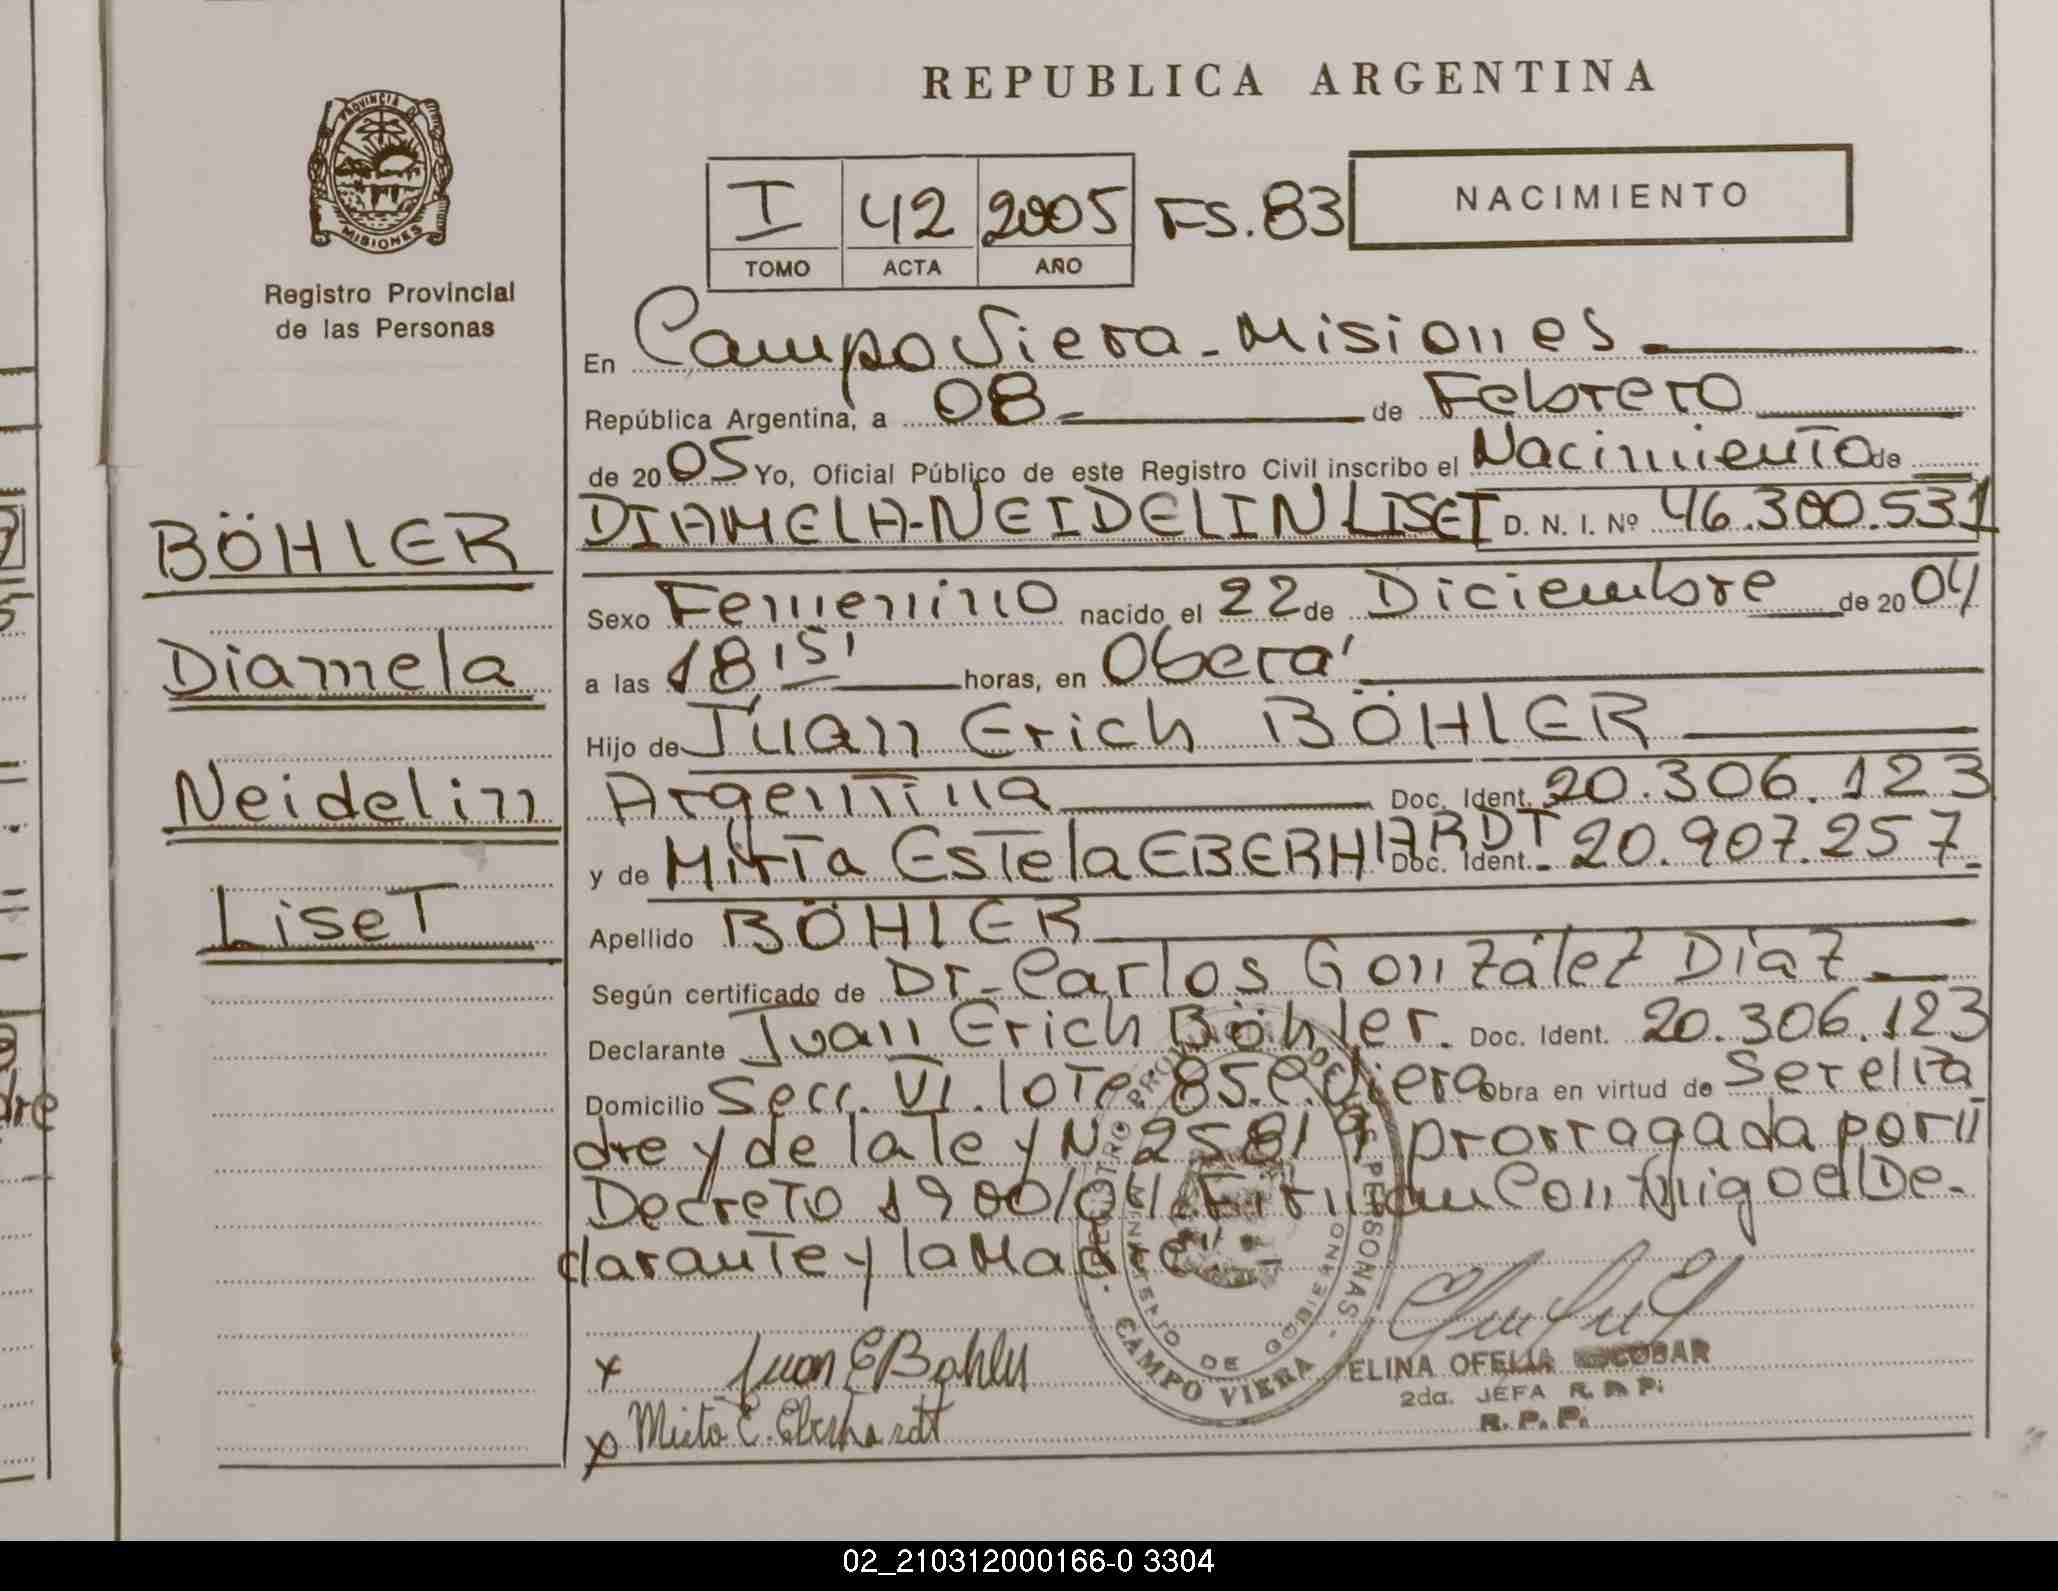 REPUBLICA ARGENTINA
PROVINCIA D
MISIONES
Registro Provincial
de las Personas
I 42 2005 FS. 83
TOMO ACTA AÑO
NACIMIENTO
En Campo Viera - Misiones
República Argentina, a 08 - de Febrero
de 20 05 Yo, Oficial Público de este Registro Civil inscribo el Nacimiento de
DIAMELA-NEIDELIN LISET D. N. I. Nº 46.300.531
Sexo Femenino nacido el 22 de Diciembre de 20 04
a las 18,15' horas, en Oberá
Hijo de Juan Erich BÖHLER
Argentina Doc. Ident. 20.306.123
y de Mirta Estela EBERHARDT Doc. Ident. 20.907.257.
Apellido BÖHLER
Según certificado de Dr. Carlos González Díaz
Declarante Juan Erich Böhler. Doc. Ident. 20.306.123
Domicilio Secc. VI. lote. 85. C. Viera obra en virtud de Ser el Pa
dre y de la ley N 2581 prorragada por
Decreto 1900/04 Firman Conmigo el De-
clarante y la Madre.
BÖHLER
Diamela
Neidelin
Liset
x Juan E Bohler
x Mirta E. Eberhardt
REGISTRO PROV DE LAS PERSONAS
MINISTERIO DE GOBIERNO
CAMPO VIERA
ELINA OFELIA ESCOBAR
2da. JEFA R. P.
R. P. P.
dre
02_210312000166-0 3304